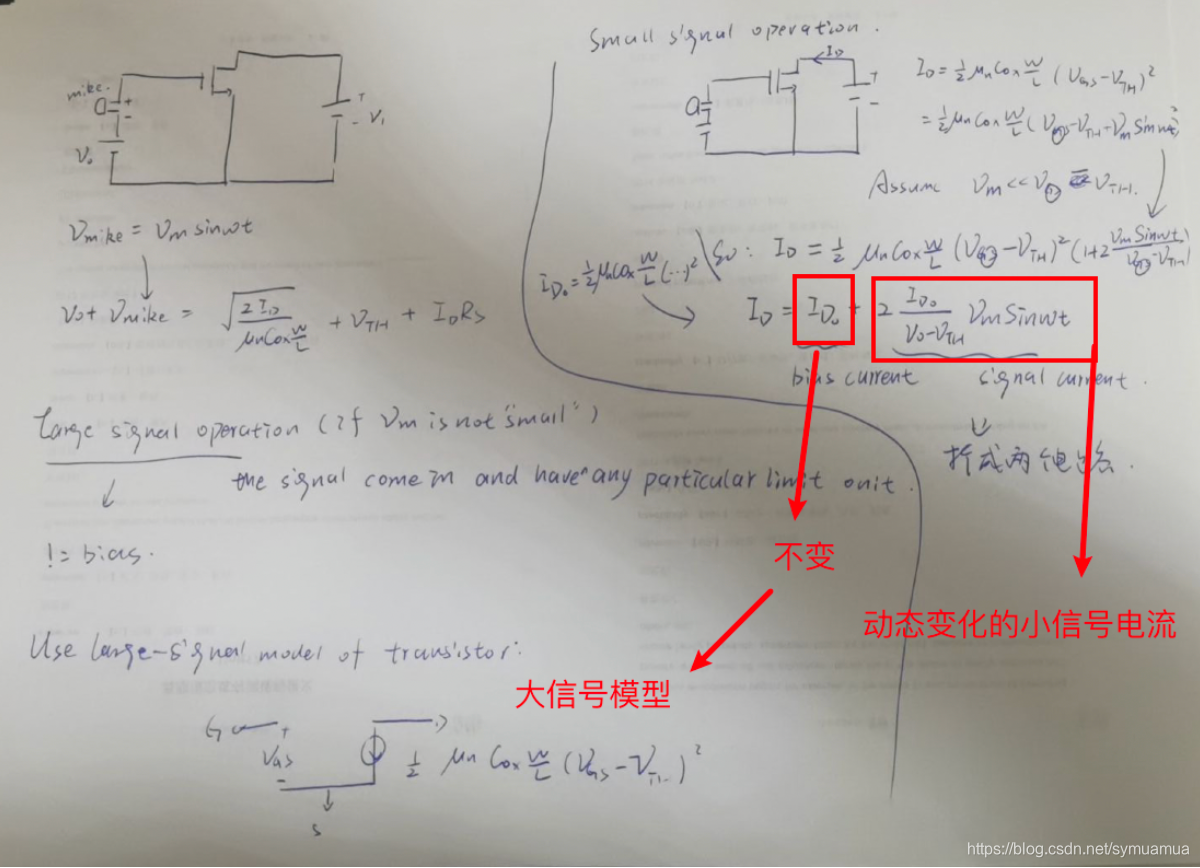 mike.
+
-
V₀
+
- V₁
Vmike = Vm sinwt
V₀ + Vmike = √(2 ID / μnCox W/L) + VTH + ID RS
Large signal operation (if Vm is not "small")
the signal come in and have any particular limit on it.
!= bias.
Use large-signal model of transistor:
大信号模型
G
+
VGS
-
S
D
½ μn Cox W/L (VGS - VTH)²
Small signal operation.
ID
+
-
ID = ½ μnCox W/L (VGS - VTH)²
= ½ μnCox W/L (V₀ - VTH + Vm Sinwt)²
Assum Vm << V₀ - VTH.
So: ID = ½ μnCox W/L (V₀ - VTH)² (1+2 Vm Sinwt / V₀ - VTH)
ID₀ = ½ μnCox W/L (...)²
ID = ID₀ + 2 ID₀ / V₀ - VTH Vm Sinwt
bias current signal current.
拆成两个电路.
不变
动态变化的小信号电流
https://blog.csdn.net/symuamua